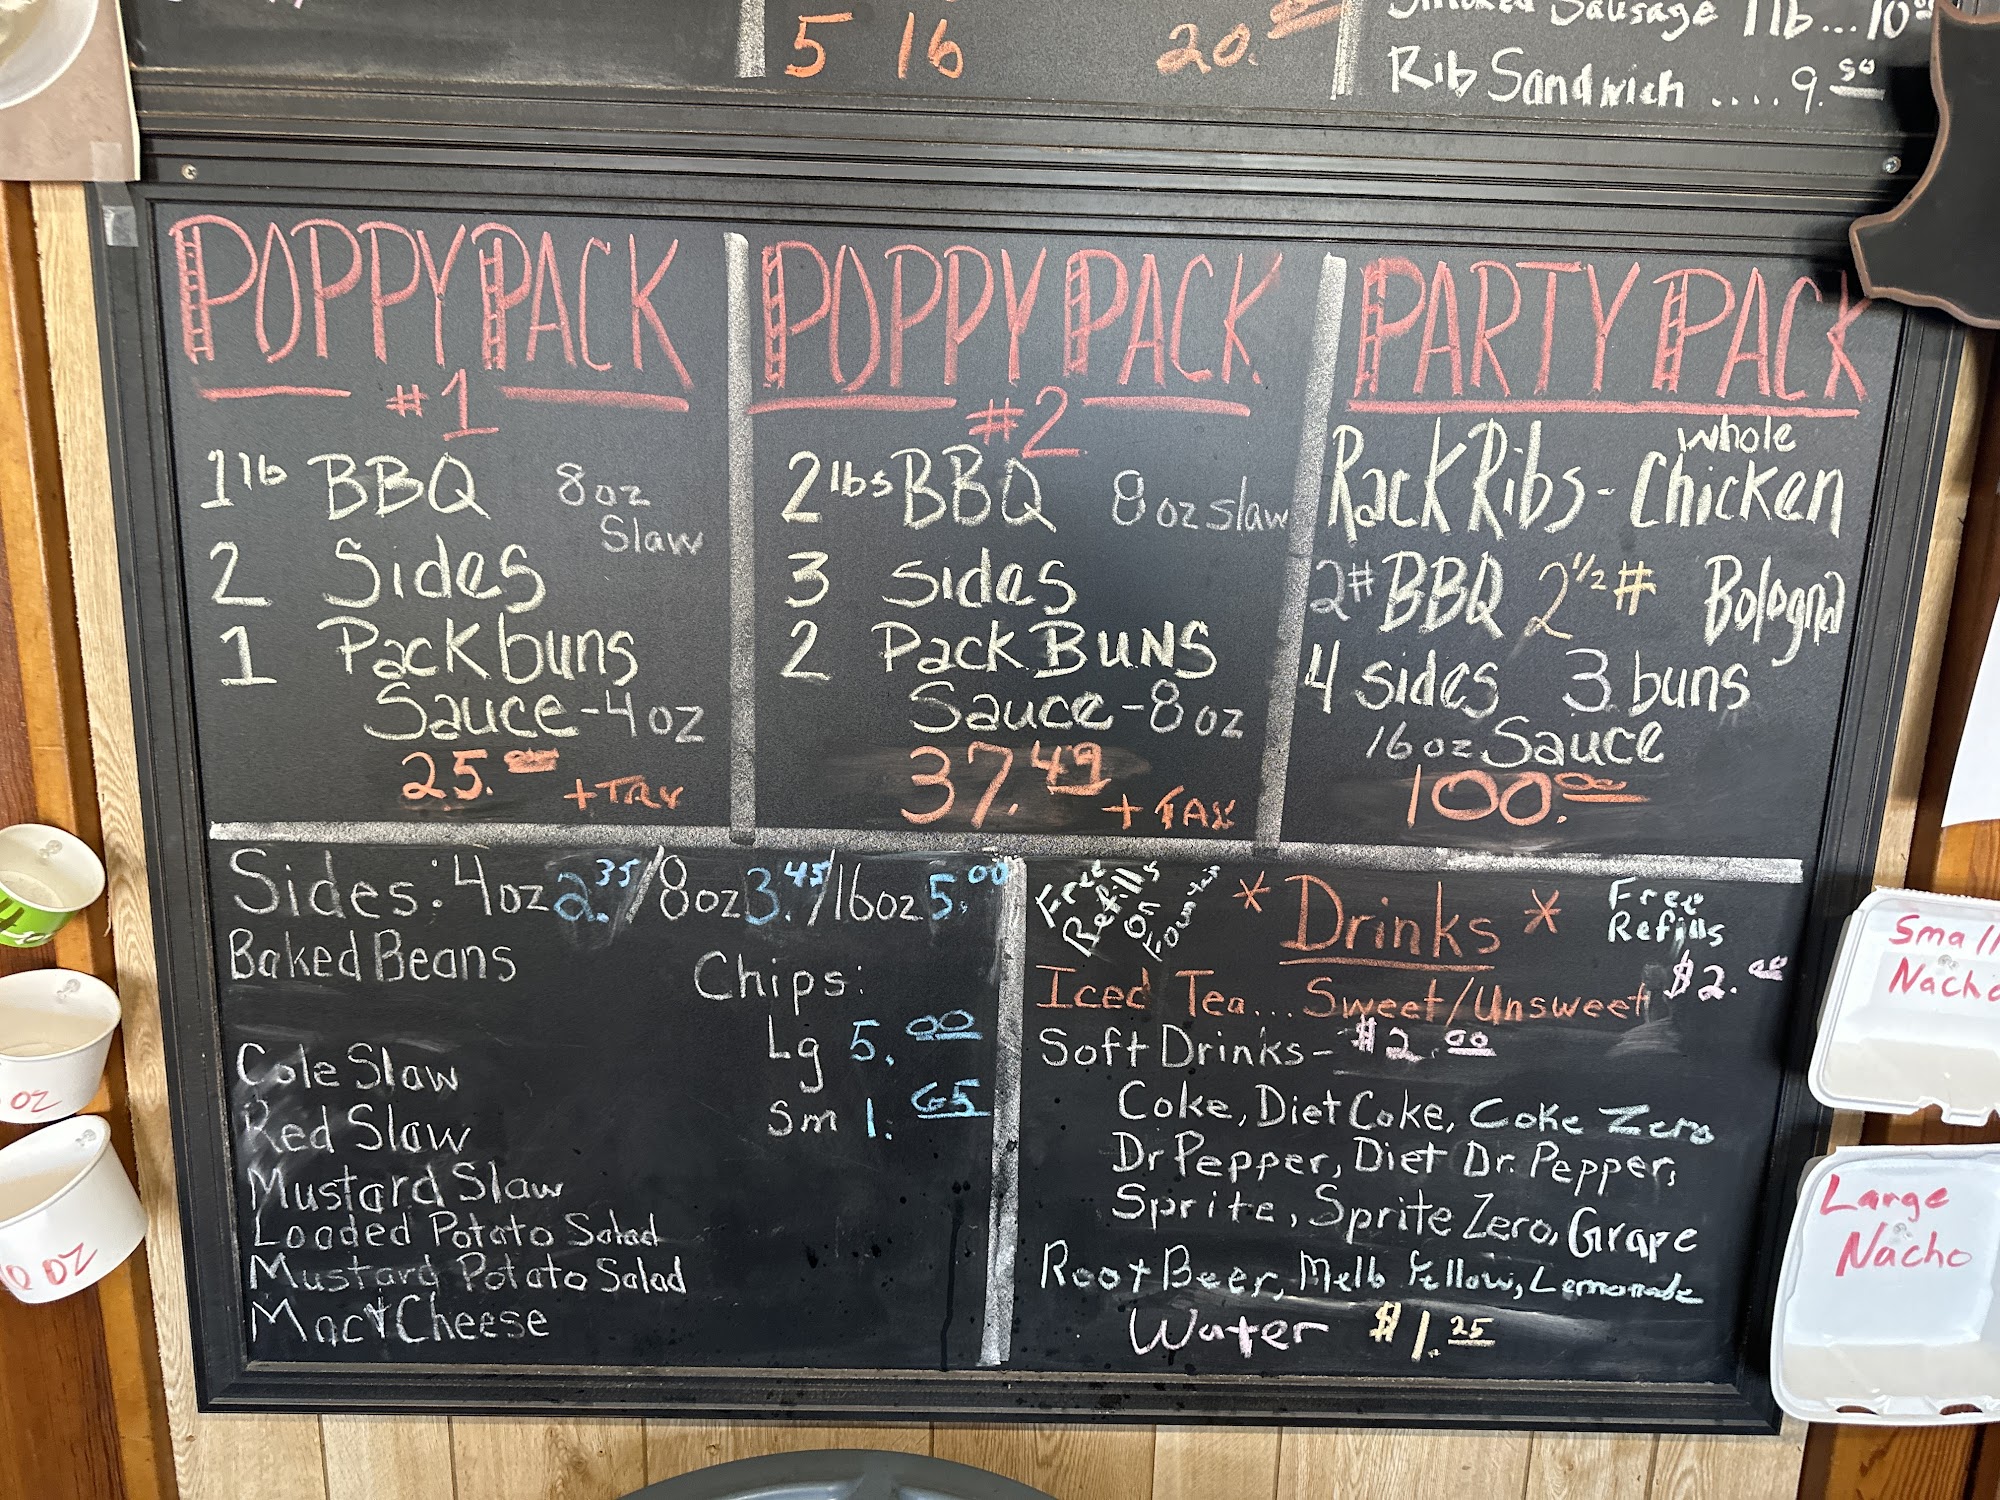 5 16 20.00
Sausage 1lb...10
Rib Sandwich ....9.50
POPPY PACK
#1
1lb BBQ 8oz
Slaw
2 Sides
1 Pack buns
Sauce-4oz
25.00 +TAX
POPPY PACK
#2
2lbs BBQ 8oz slaw
3 sides
2 Pack BUNS
Sauce-8oz
37.49 + TAX
PARTY PACK
Rack Ribs- whole Chicken
2# BBQ 2 1/2# Bologna
4 sides 3 buns
16oz Sauce
100.00
Sides: 4oz 2.35/8oz 3.45/16oz 5.00
Baked Beans
Cole Slaw
Red Slaw
Mustard Slaw
Loaded Potato Salad
Mustard Potato Salad
Mac & Cheese
Chips:
Lg 5.00
Sm 1.65
Free
Refills
on
Fountain
* Drinks *
Free
Refills
Iced Tea... Sweet/Unsweet $2.00
Soft Drinks- $2.00
Coke, Diet Coke, Coke Zero
Dr Pepper, Diet Dr. Pepper,
Sprite, Sprite Zero, Grape
Root Beer, Mello Yellow, Lemonade
Water $1.25
OZ
OZ
Small
Nacho
Large
Nacho